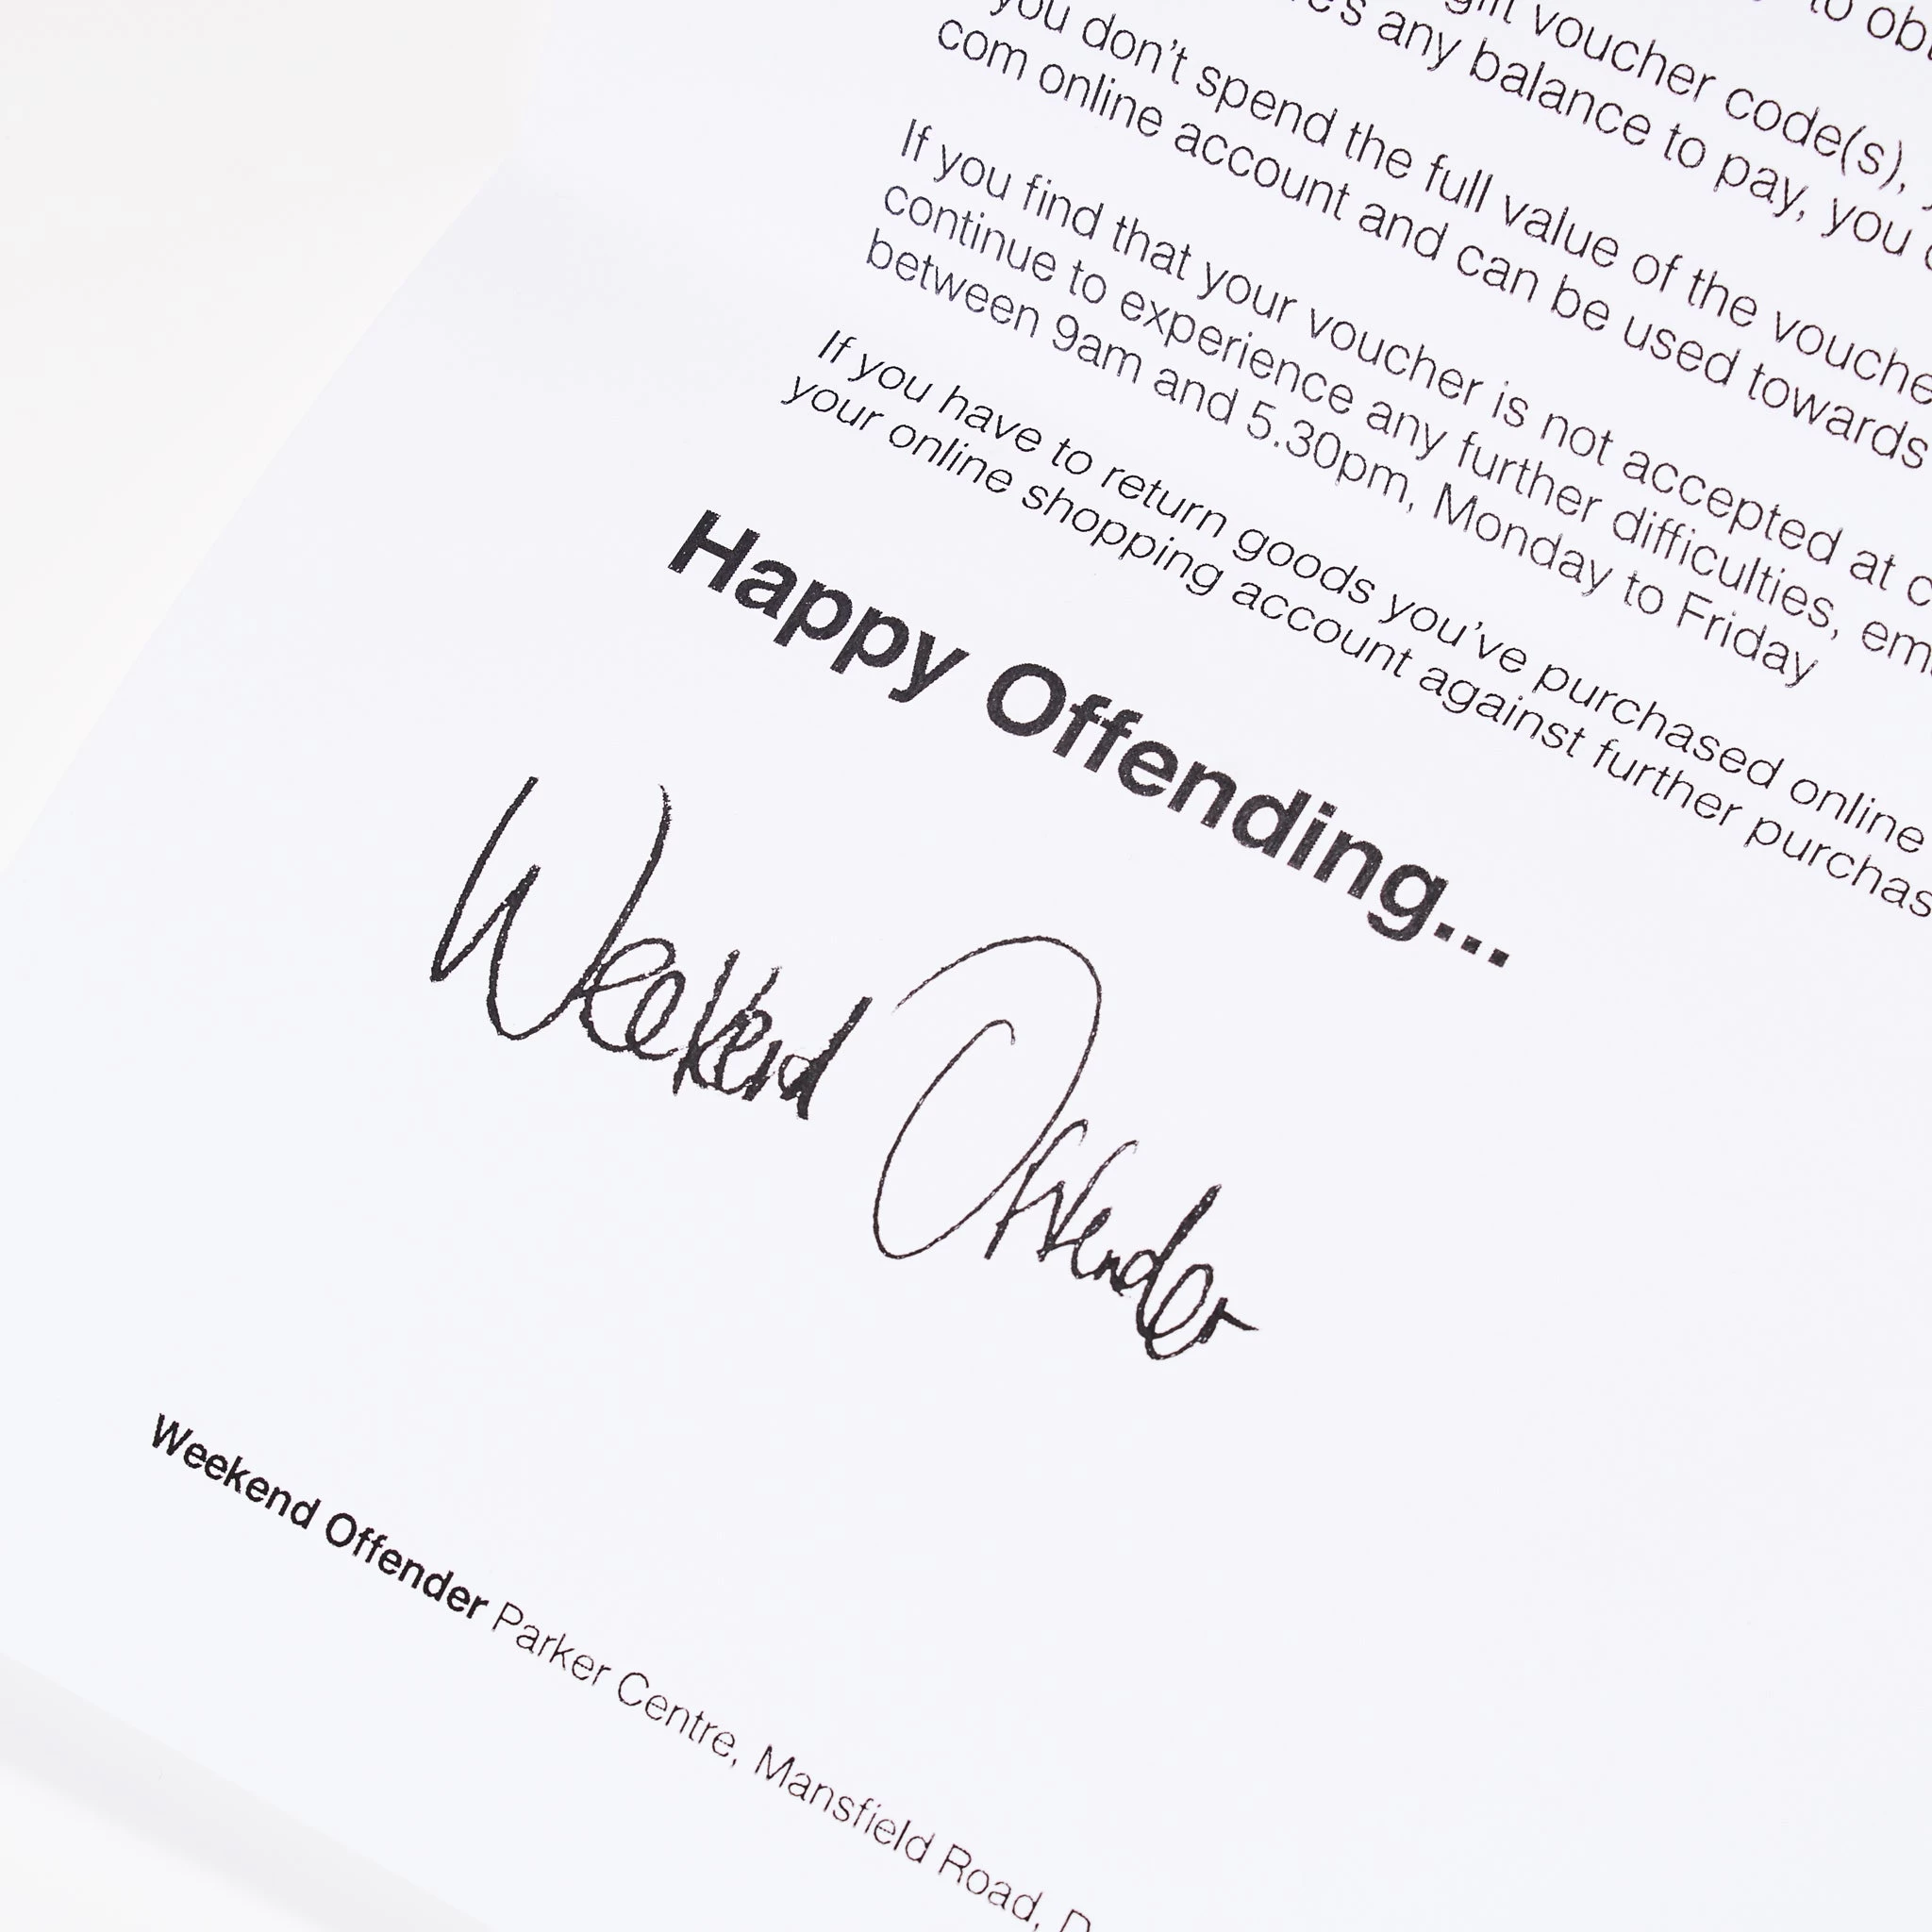 voucher code(s),
any balance to pay, you
you don't spend the full value of the
com online account and can be used towards
If you find that your voucher is not accepted at
continue to experience any further difficulties,
between 9am and 5.30pm, Monday to Friday
If you have to return goods you've purchased online
your online shopping account against further
Happy Offending...
Weekend Offender
Weekend Offender Parker Centre, Mansfield Road,